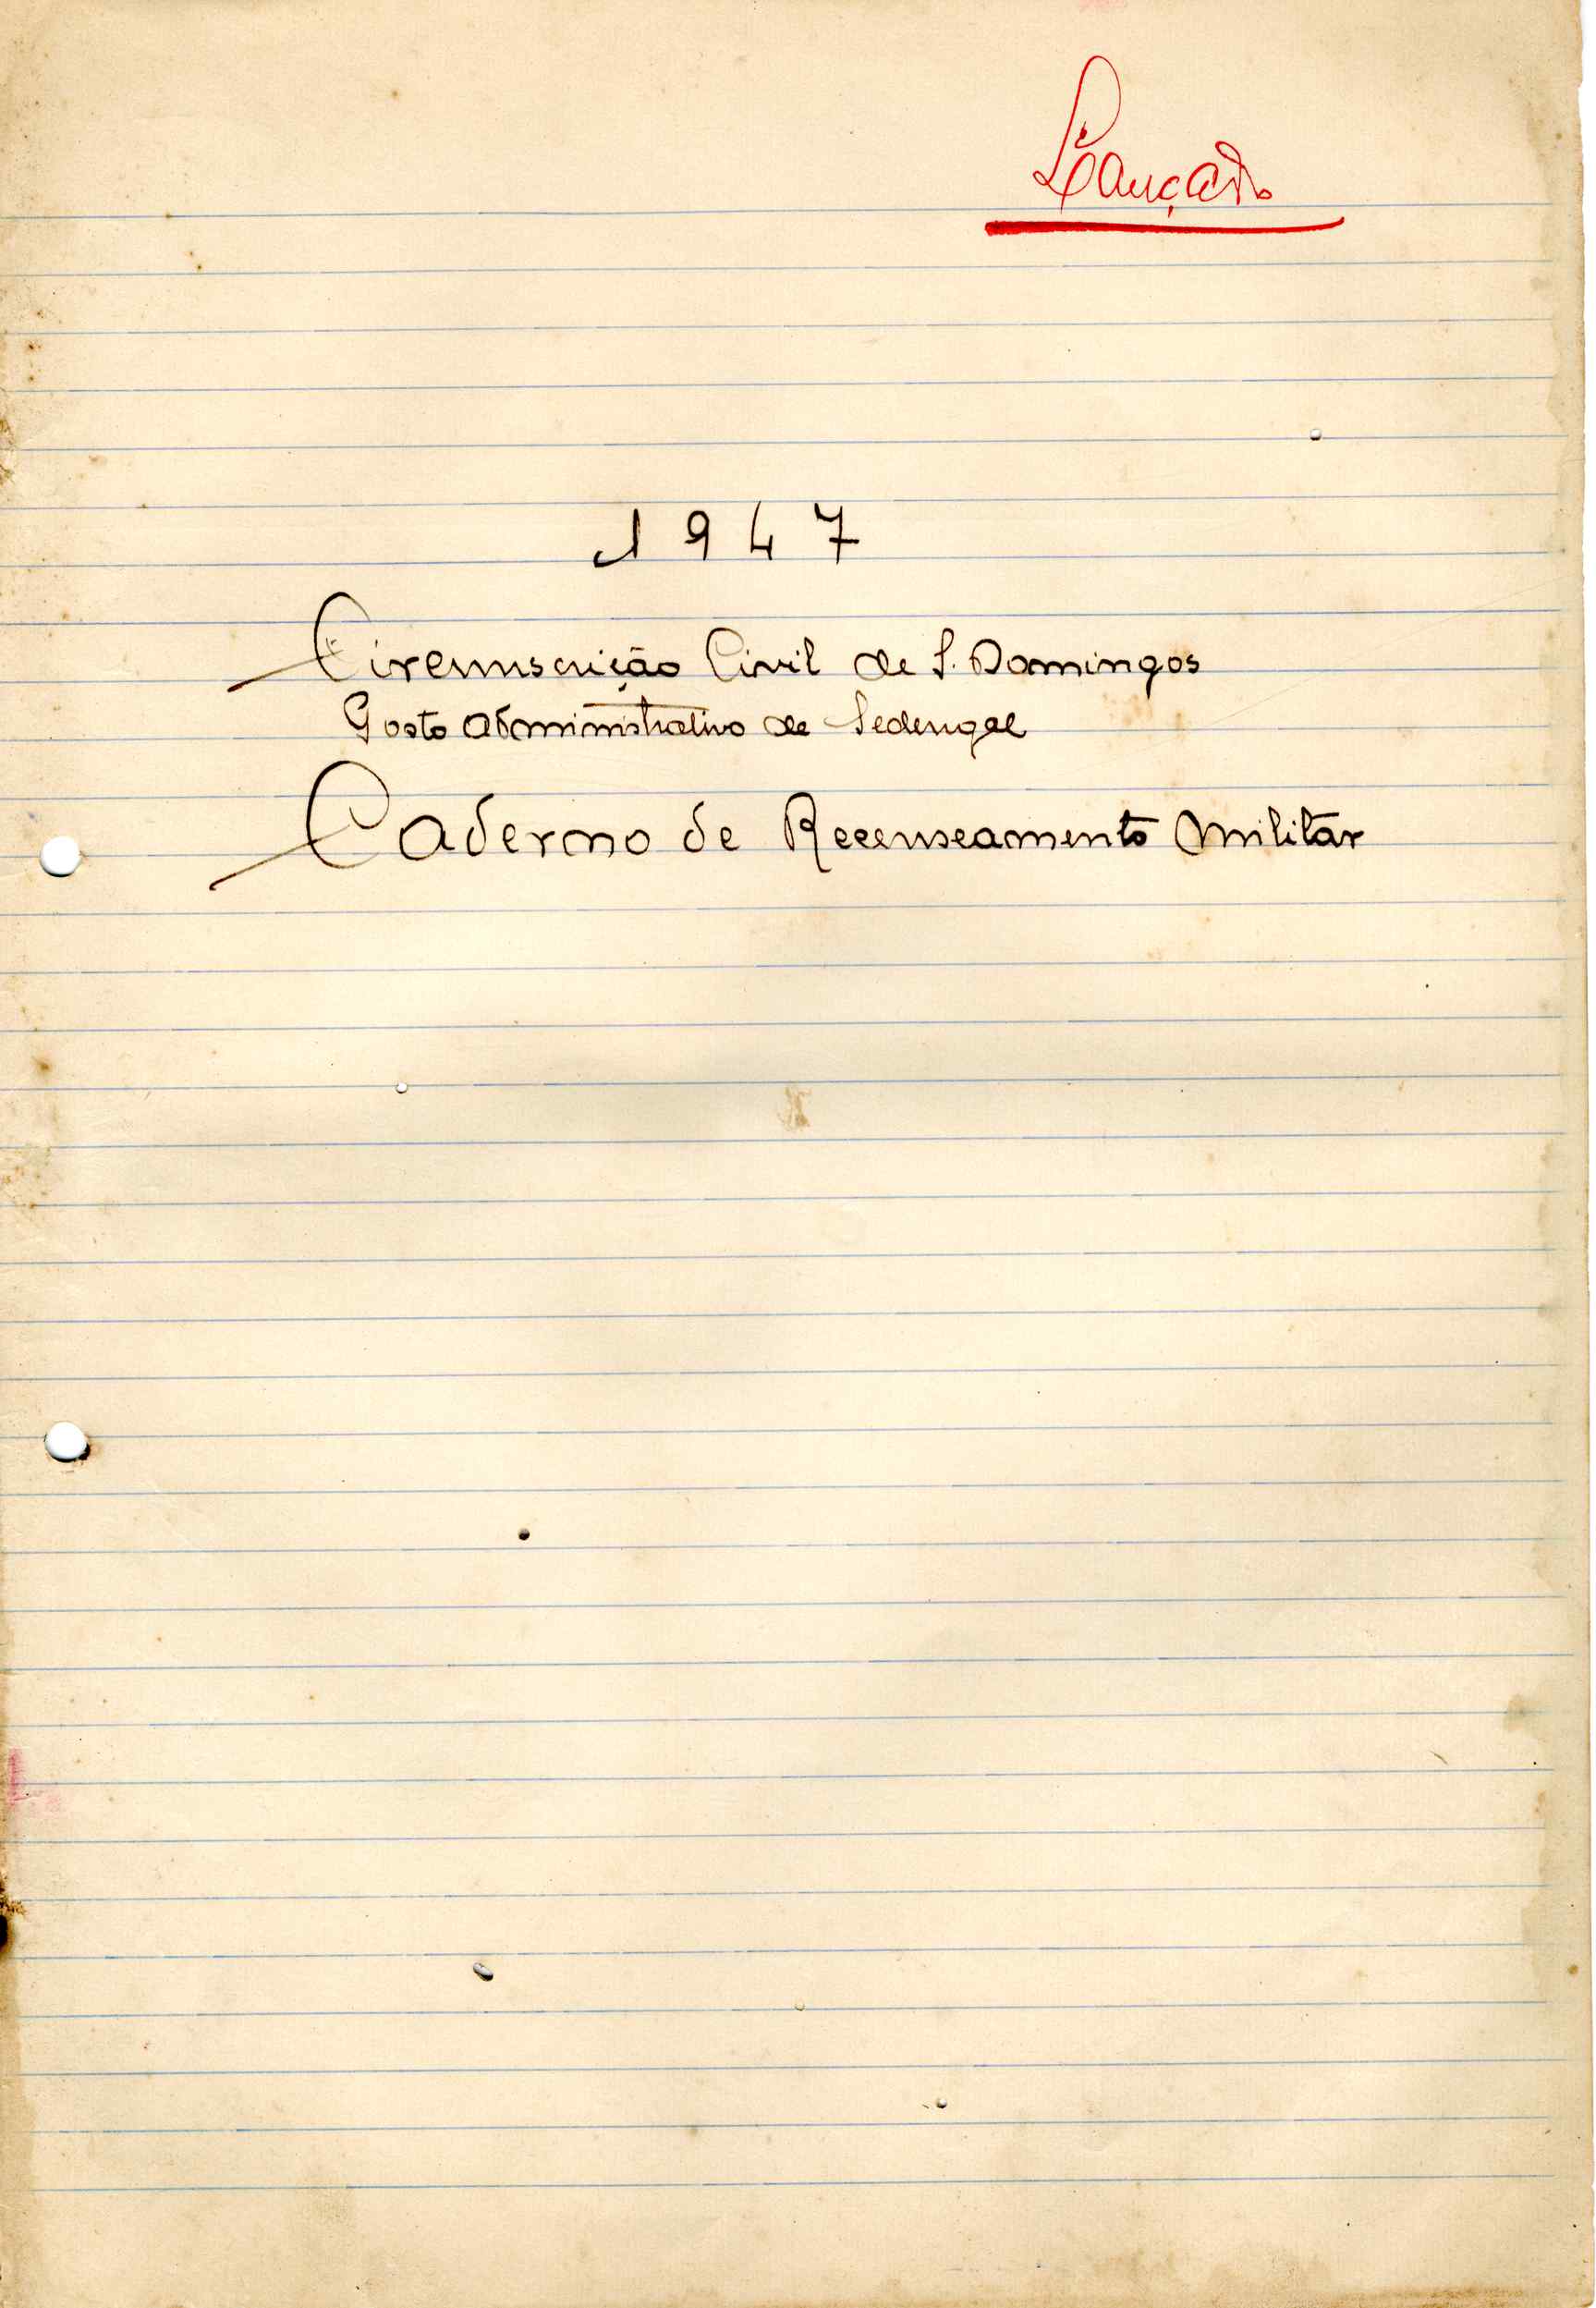 Lançado
1947
Circunscrição Civil de S. Domingos
Posto Administrativo de Sedengal
Caderno de Recenseamento Militar